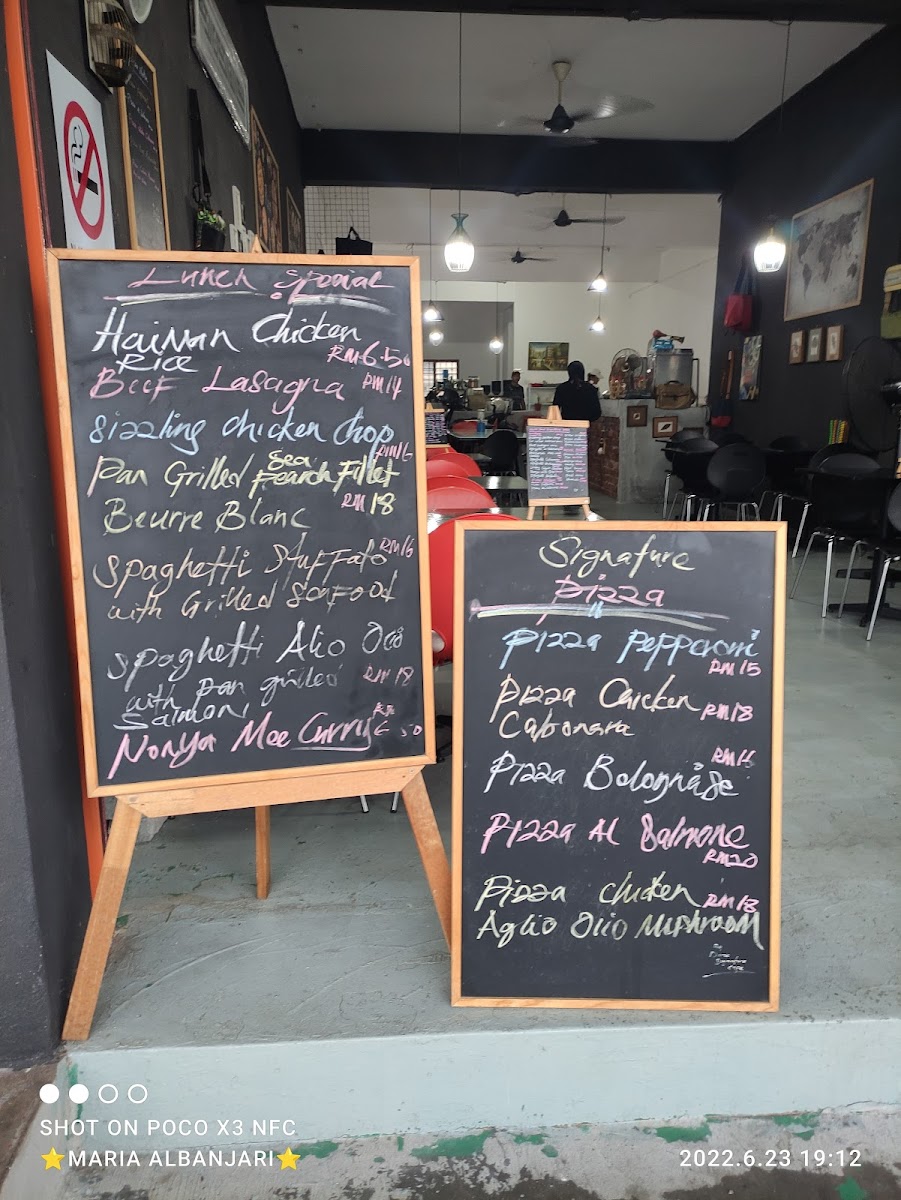 Lunch Special
Hainan Chicken
Rice RM6.50
Beef Lasagna RM14
Sizzling Chicken Chop
RM16
Pan Grilled Sea Pearch Fillet
Beurre Blanc RM18
Spaghetti Stuffato RM16
with Grilled Seafood
Spaghetti Alio Olio
with pan grilled RM18
Salmon
Nonya Mee Curry RM
6.50
Signature
Pizza
Pizza Pepperoni
RM15
Pizza Chicken RM18
Cabonara
Pizza Bolognase
Pizza Al Salmone
RM20
Pizza chicken RM18
Aglio Olio Mushroom
SHOT ON POCO X3 NFC
⭐MARIA ALBANJARI⭐
2022.6.23 19:12